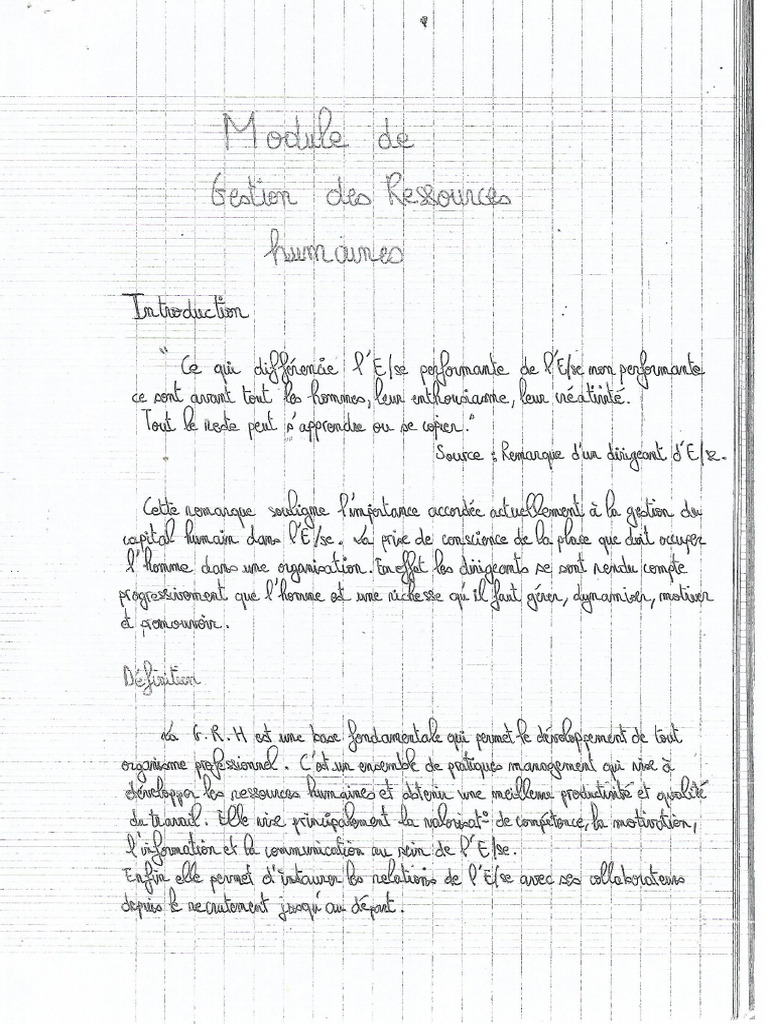 Module de
Gestion des Ressources
humaines
Introduction
" Ce qui différencie l'E/se performante de l'E/se non performante
ce sont avant tout les hommes, leur enthousiasme, leur créativité.
Tout le reste peut s'apprendre ou se copier."
Source : Remarque d'un dirigeant d'E/se.
Cette remarque souligne l'importance accordée actuellement à la gestion du
capital humain dans l'E/se. La prise de conscience de la place que doit occuper
l'homme dans une organisation. En effet les dirigeants se sont rendu compte
progressivement que l'homme est une richesse qu'il faut gérer, dynamiser, motiver
et promouvoir.
Définition
La G.R.H est une base fondamentale qui permet le développement de tout
organisme professionnel. C'est un ensemble de pratiques management qui vise à
développer les ressources humaines et obtenir une meilleure productivité et qualité
du travail. Elle vise principalement la valorisat° de compétence, la motivation,
l'information et la communication au sein de l'E/se.
Enfin elle permet d'intaurer les relations de l'E/se avec ses collaborateurs
depuis le recrutement jusqu'au départ.